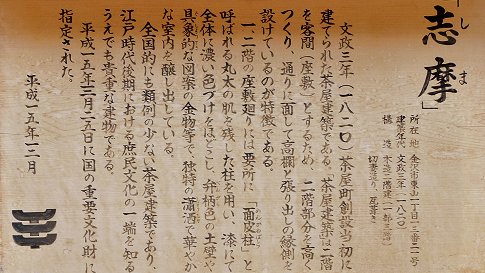 しま
「志摩」
所在地 金沢市東山一丁目一三番二一号
建築年代 文政三年(一八二〇)
構造 木造二階建(一部三階)
切妻造り、瓦葺き
文政三年(一八二〇)茶屋町創設当初に
建てられた茶屋建築である。茶屋建築は二階
を客間(座敷)とするため、二階部分を高く
つくり、通りに面して高欄と張り出しの縁側を
設けているのが特徴である。
一、二階の座敷廻りには要所に「面皮柱」と
めんかわばしら
呼ばれる丸太の肌を残した柱を用い、漆にて
全体に濃い色づけをほどこし、弁柄色の土壁や
具象的な図案の金物等で、独特の瀟洒で華やか
な室内を醸し出している。
全国的にも類例の少ない茶屋建築であり、
江戸時代後期における庶民文化の一端を知る
うえでも貴重な建物である。
平成一五年二月二五日に国の重要文化財に
指定された。
平成一五年三月